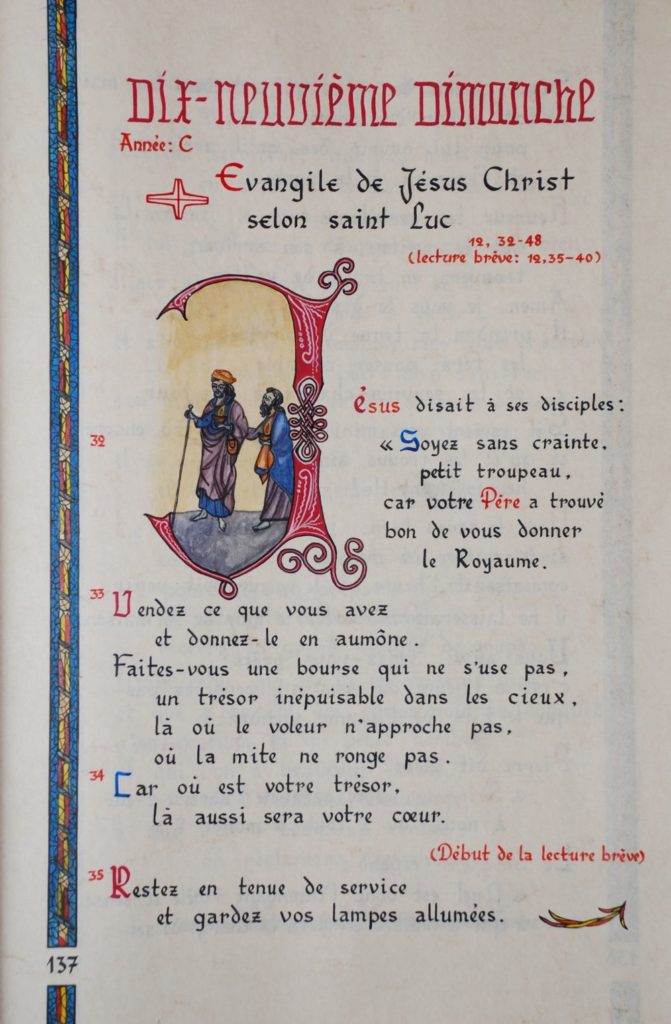 Dix-neuvième Dimanche
Année: C
Evangile de Jésus Christ
selon saint Luc
12, 32-48
(lecture brève: 12,35-40)
Jésus disait à ses disciples:
32
« Soyez sans crainte,
petit troupeau,
car votre Père a trouvé
bon de vous donner
le Royaume.
33
Vendez ce que vous avez
et donnez-le en aumône.
Faites-vous une bourse qui ne s'use pas,
un trésor inépuisable dans les cieux,
là où le voleur n'approche pas,
où la mite ne ronge pas.
34
Car où est votre trésor,
là aussi sera votre cœur.
(Début de la lecture brève)
35
Restez en tenue de service
et gardez vos lampes allumées.
137